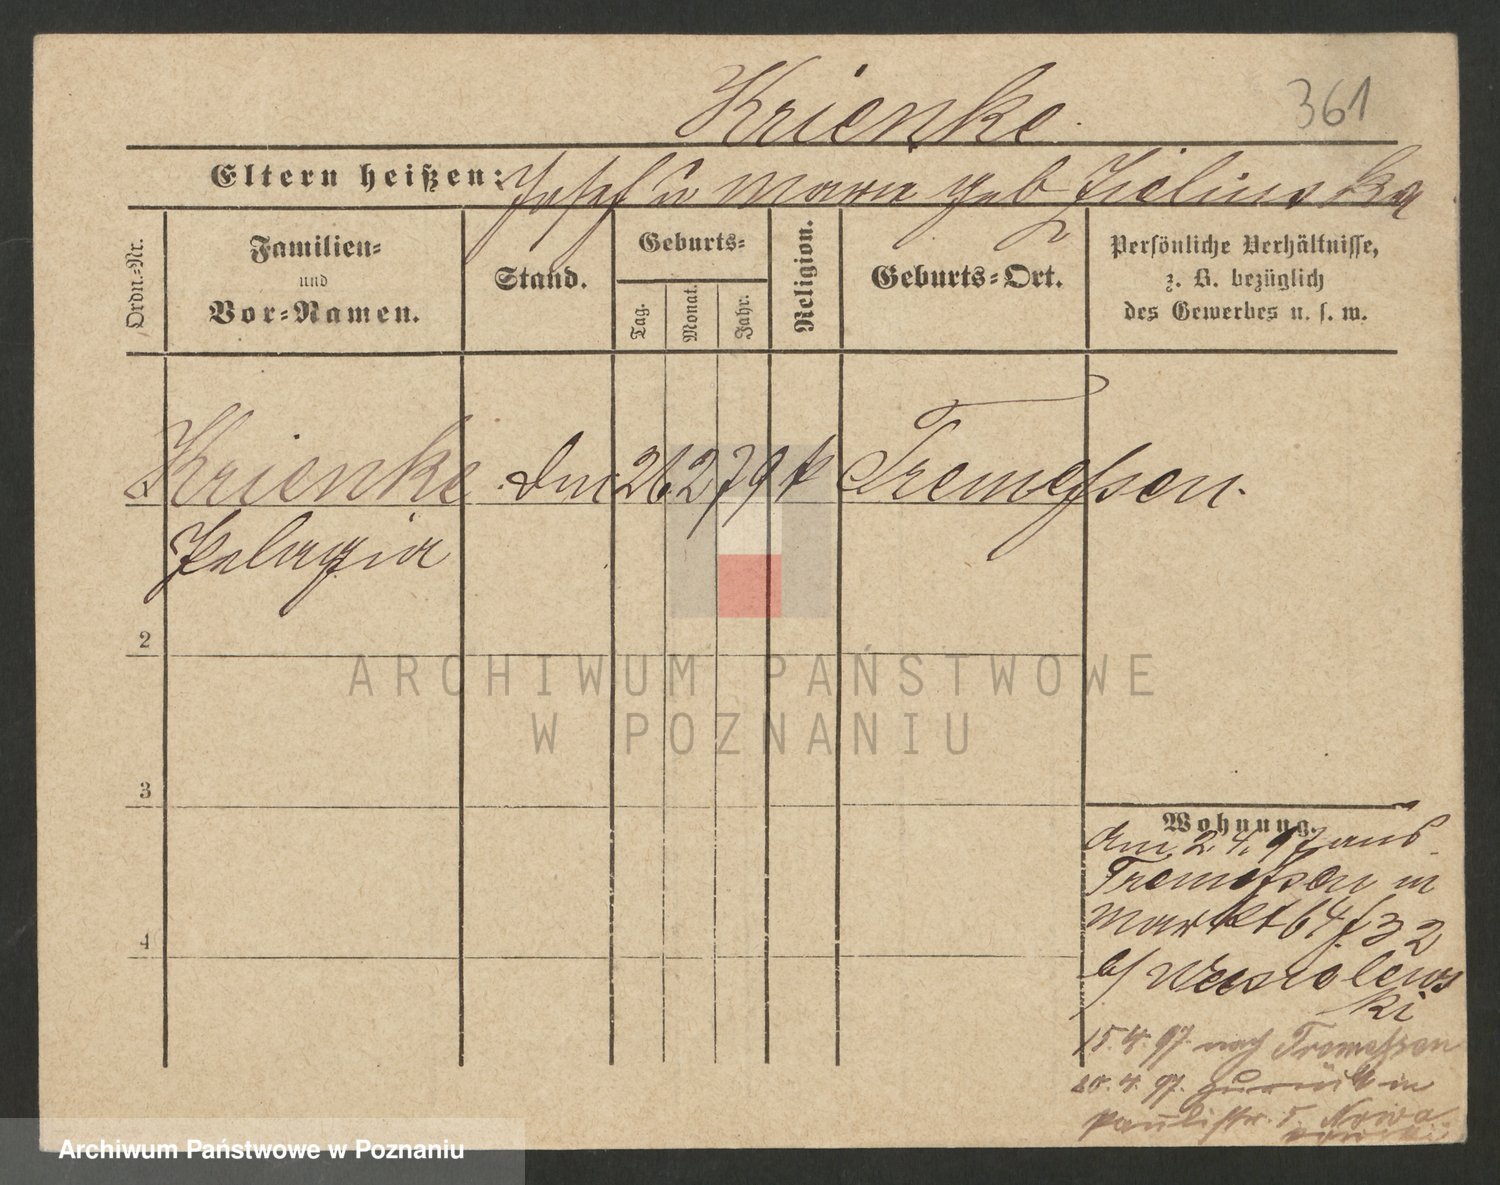 Krienke
361
Eltern heißen: Josef u Maria geb Zielinska
Ordn.-Nr.
Familien-
und
Vor-Namen.
Stand.
Geburts-
Tag.
Monat.
Jahr.
Religion.
Geburts-Ort.
Persönliche Verhältnisse,
z. B. bezüglich
des Gewerbes u. s. w.
1 Krienke
Pelagia
26 2 79 k Tremessen.
2
3
4
ARCHIWUM PAŃSTWOWE
W POZNANIU
Wohnung.
Am 2. 4. 97 aus
Tremessen in
Markt 64/32
b/ Wesolews
ki
15. 4. 97. nach Tremessen
20. 4. 97. zurück in
Paulistr. 5. Nowa
Archiwum Państwowe w Poznaniu